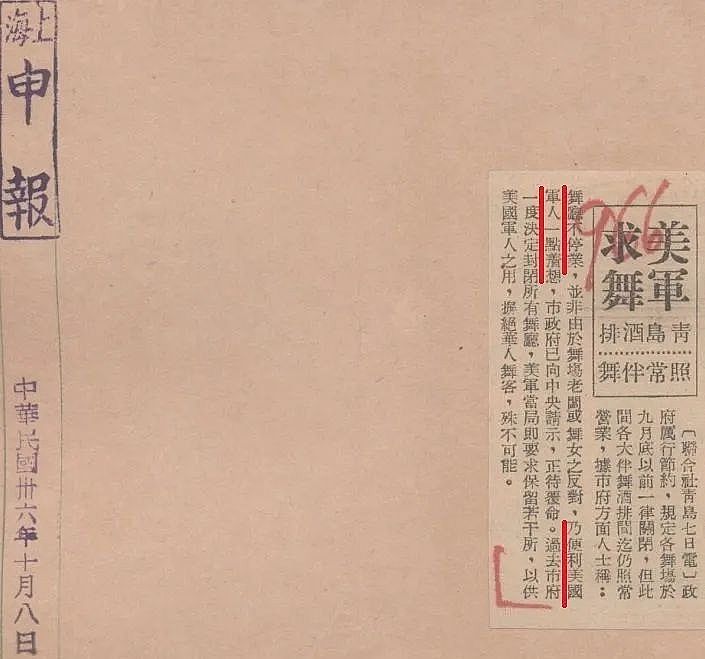 上海
申報
中華民國卅六年十月八日
966
美軍
求舞
青島酒排
照常伴舞
〔聯合社青島七日電〕政
府厲行節約，規定各舞場於
九月底以前一律關閉，但此
間各大伴舞酒排間迄仍照常
營業，據市府方面人士稱：
舞廳不停業，並非由於舞場老闆或舞女之反對，乃便利美國
軍人一點着想，市政府已向中央請示，正待覆命。過去市府
一度決定封閉所有舞廳，美軍當局即要求保留若干所，以供
美國軍人之用，摒絕華人舞客，殊不可能。